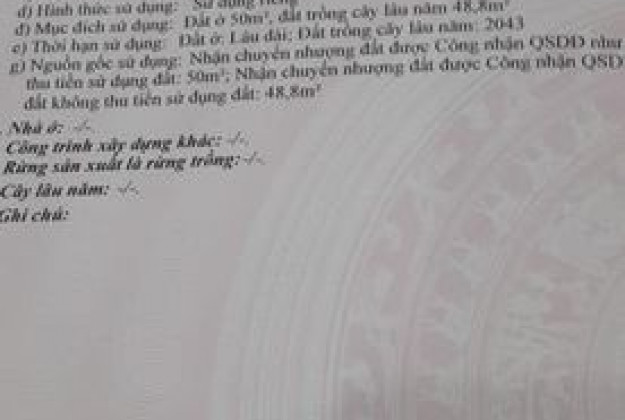 d) Hình thức sử dụng: Sử dụng riêng
đ) Mục đích sử dụng: Đất ở 50m², đất trồng cây lâu năm 48,8m²
e) Thời hạn sử dụng: Đất ở: Lâu dài; Đất trồng cây lâu năm: 2043
g) Nguồn gốc sử dụng: Nhận chuyển nhượng đất được Công nhận QSDĐ như
thu tiền sử dụng đất: 50m²; Nhận chuyển nhượng đất được Công nhận QSD
đất không thu tiền sử dụng đất: 48,8m²
Nhà ở: -/-.
Công trình xây dựng khác: -/-.
Rừng sản xuất là rừng trồng: -/-.
Cây lâu năm: -/-.
Ghi chú: